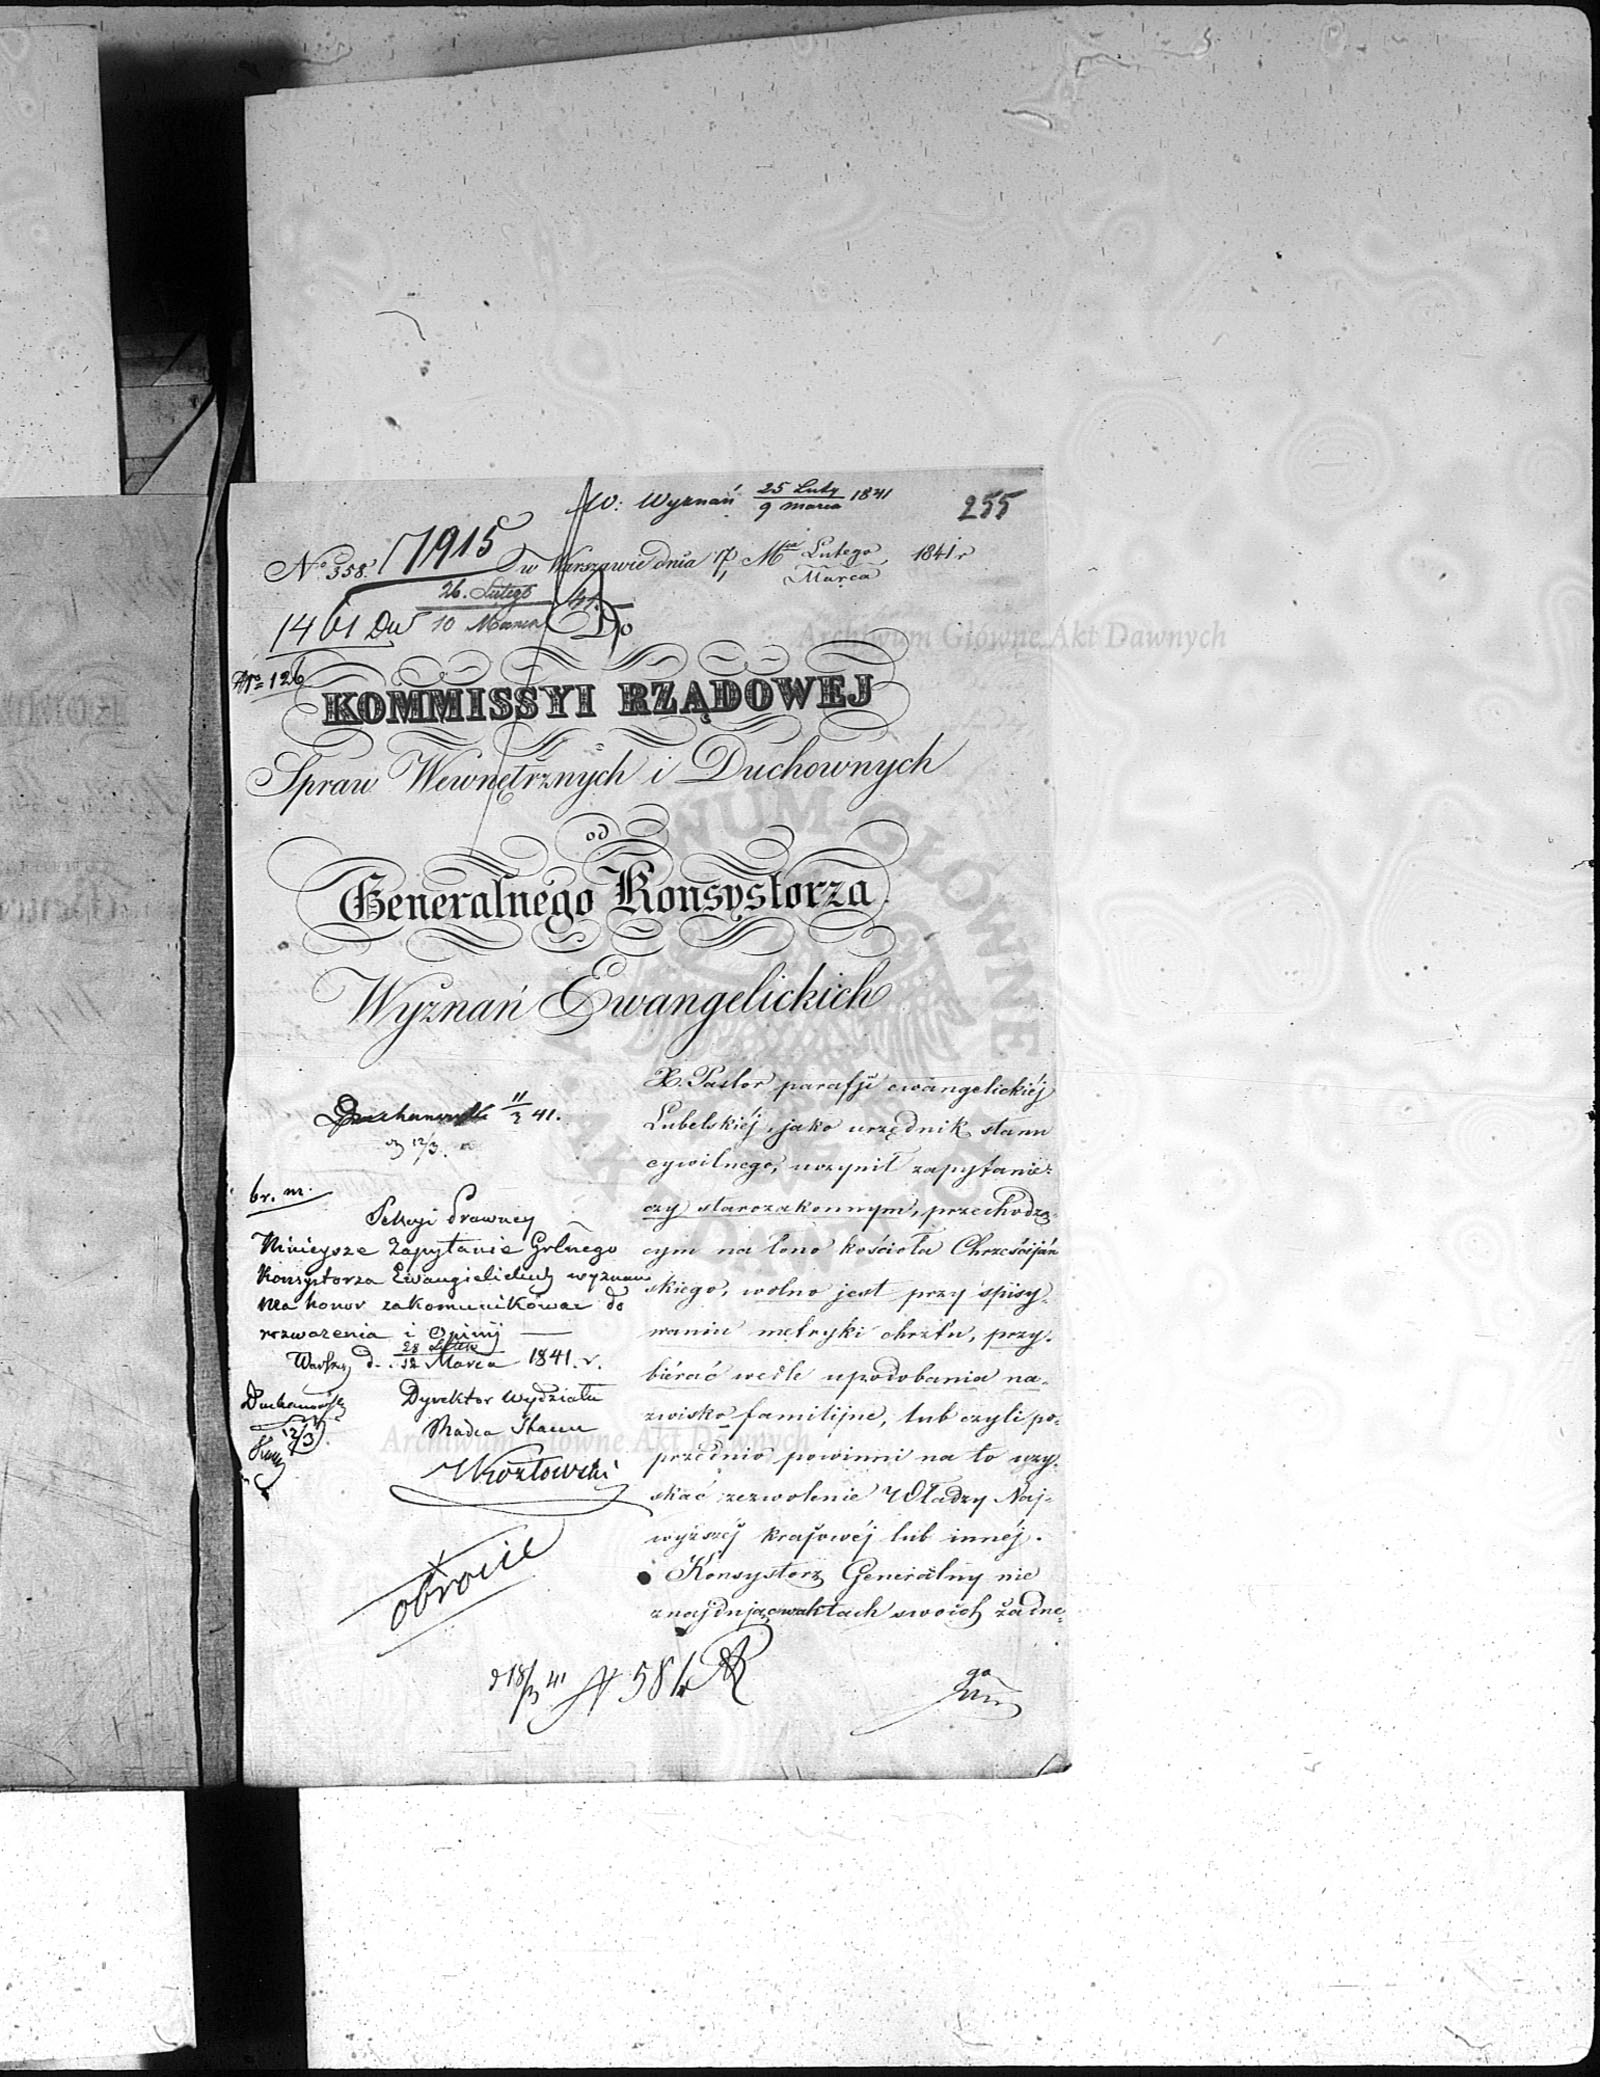 W: Wyznań 25 Luty / 9 Marca 1841
255
No 358. 1915 w Warszawie dnia Mca Lutego / Marca 1841 r
26. Lutego / 10 Marca 41.
1461 Dw
No 126
Do
KOMMISSYI RZĄDOWEJ
Spraw Wewnętrznych i Duchownych
od
Generalnego Konsystorza
Wyznań Ewangelickich
11/3 41.
12/3.
br. m.
Sekcyi Prawney
Ninieysze Zapytanie Grlnego
Konsystorza Ewangielickich wyznań
ma honor zakomunikować do
rozważenia i Opinij —
Warsz d. 28 Lutego / 12 Marca 1841. r.
Dyrektor Wydziału
Radca Stanu
Kozłowski
12/3
obrocie
X. Pastor parafji ewangelickiéj
Lubelskiéj, jako urzędnik stanu
cywilnego, uczynił zapytanie:
czy starozakonnym, przechodzą-
cym na łono kościoła Chrześcijań
skiego, wolno jest przy spisy-
waniu metryki chrztu, przy-
biérać wedle upodobania na-
zwisko familijne, lub czyli po-
przednio powinni na to uzy-
skać zezwolenie Władzy Naj-
wyższéj krajowéj lub innéj.
Konsystorz Generalny nie
znajdując w aktach swoich żadne-
go
d 18/3 41 N 581
Archiwum Główne Akt Dawnych
Archiwum Główne Akt Dawnych
ARCHIWUM GŁÓWNE AKT DAWNYCH